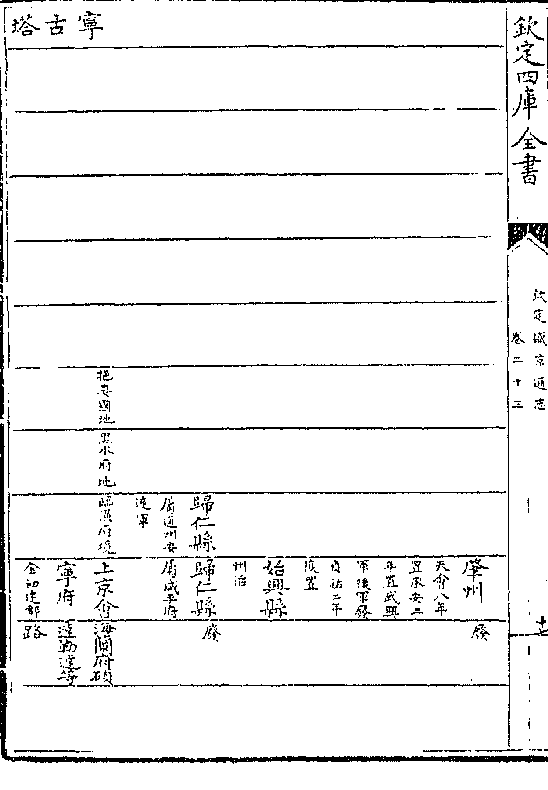 欽定四庫全書
欽定盛京通志
卷二十三
肇州
天會八年
置承安三
年置武興
軍後軍廢
貞祐二年
復置
廢
始興縣
州治
歸仁縣
屬通州安
遠軍
歸仁縣
屬咸平府
廢
寧古塔
挹婁國地
黑水府地
龍泉府境
上京會
寧府
金初建都
海蘭府碩
達勒達等
路